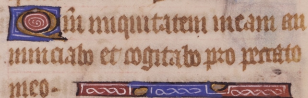 Qm iniquitatem meam an
nunciabo et cogitabo pro peccato
meo.